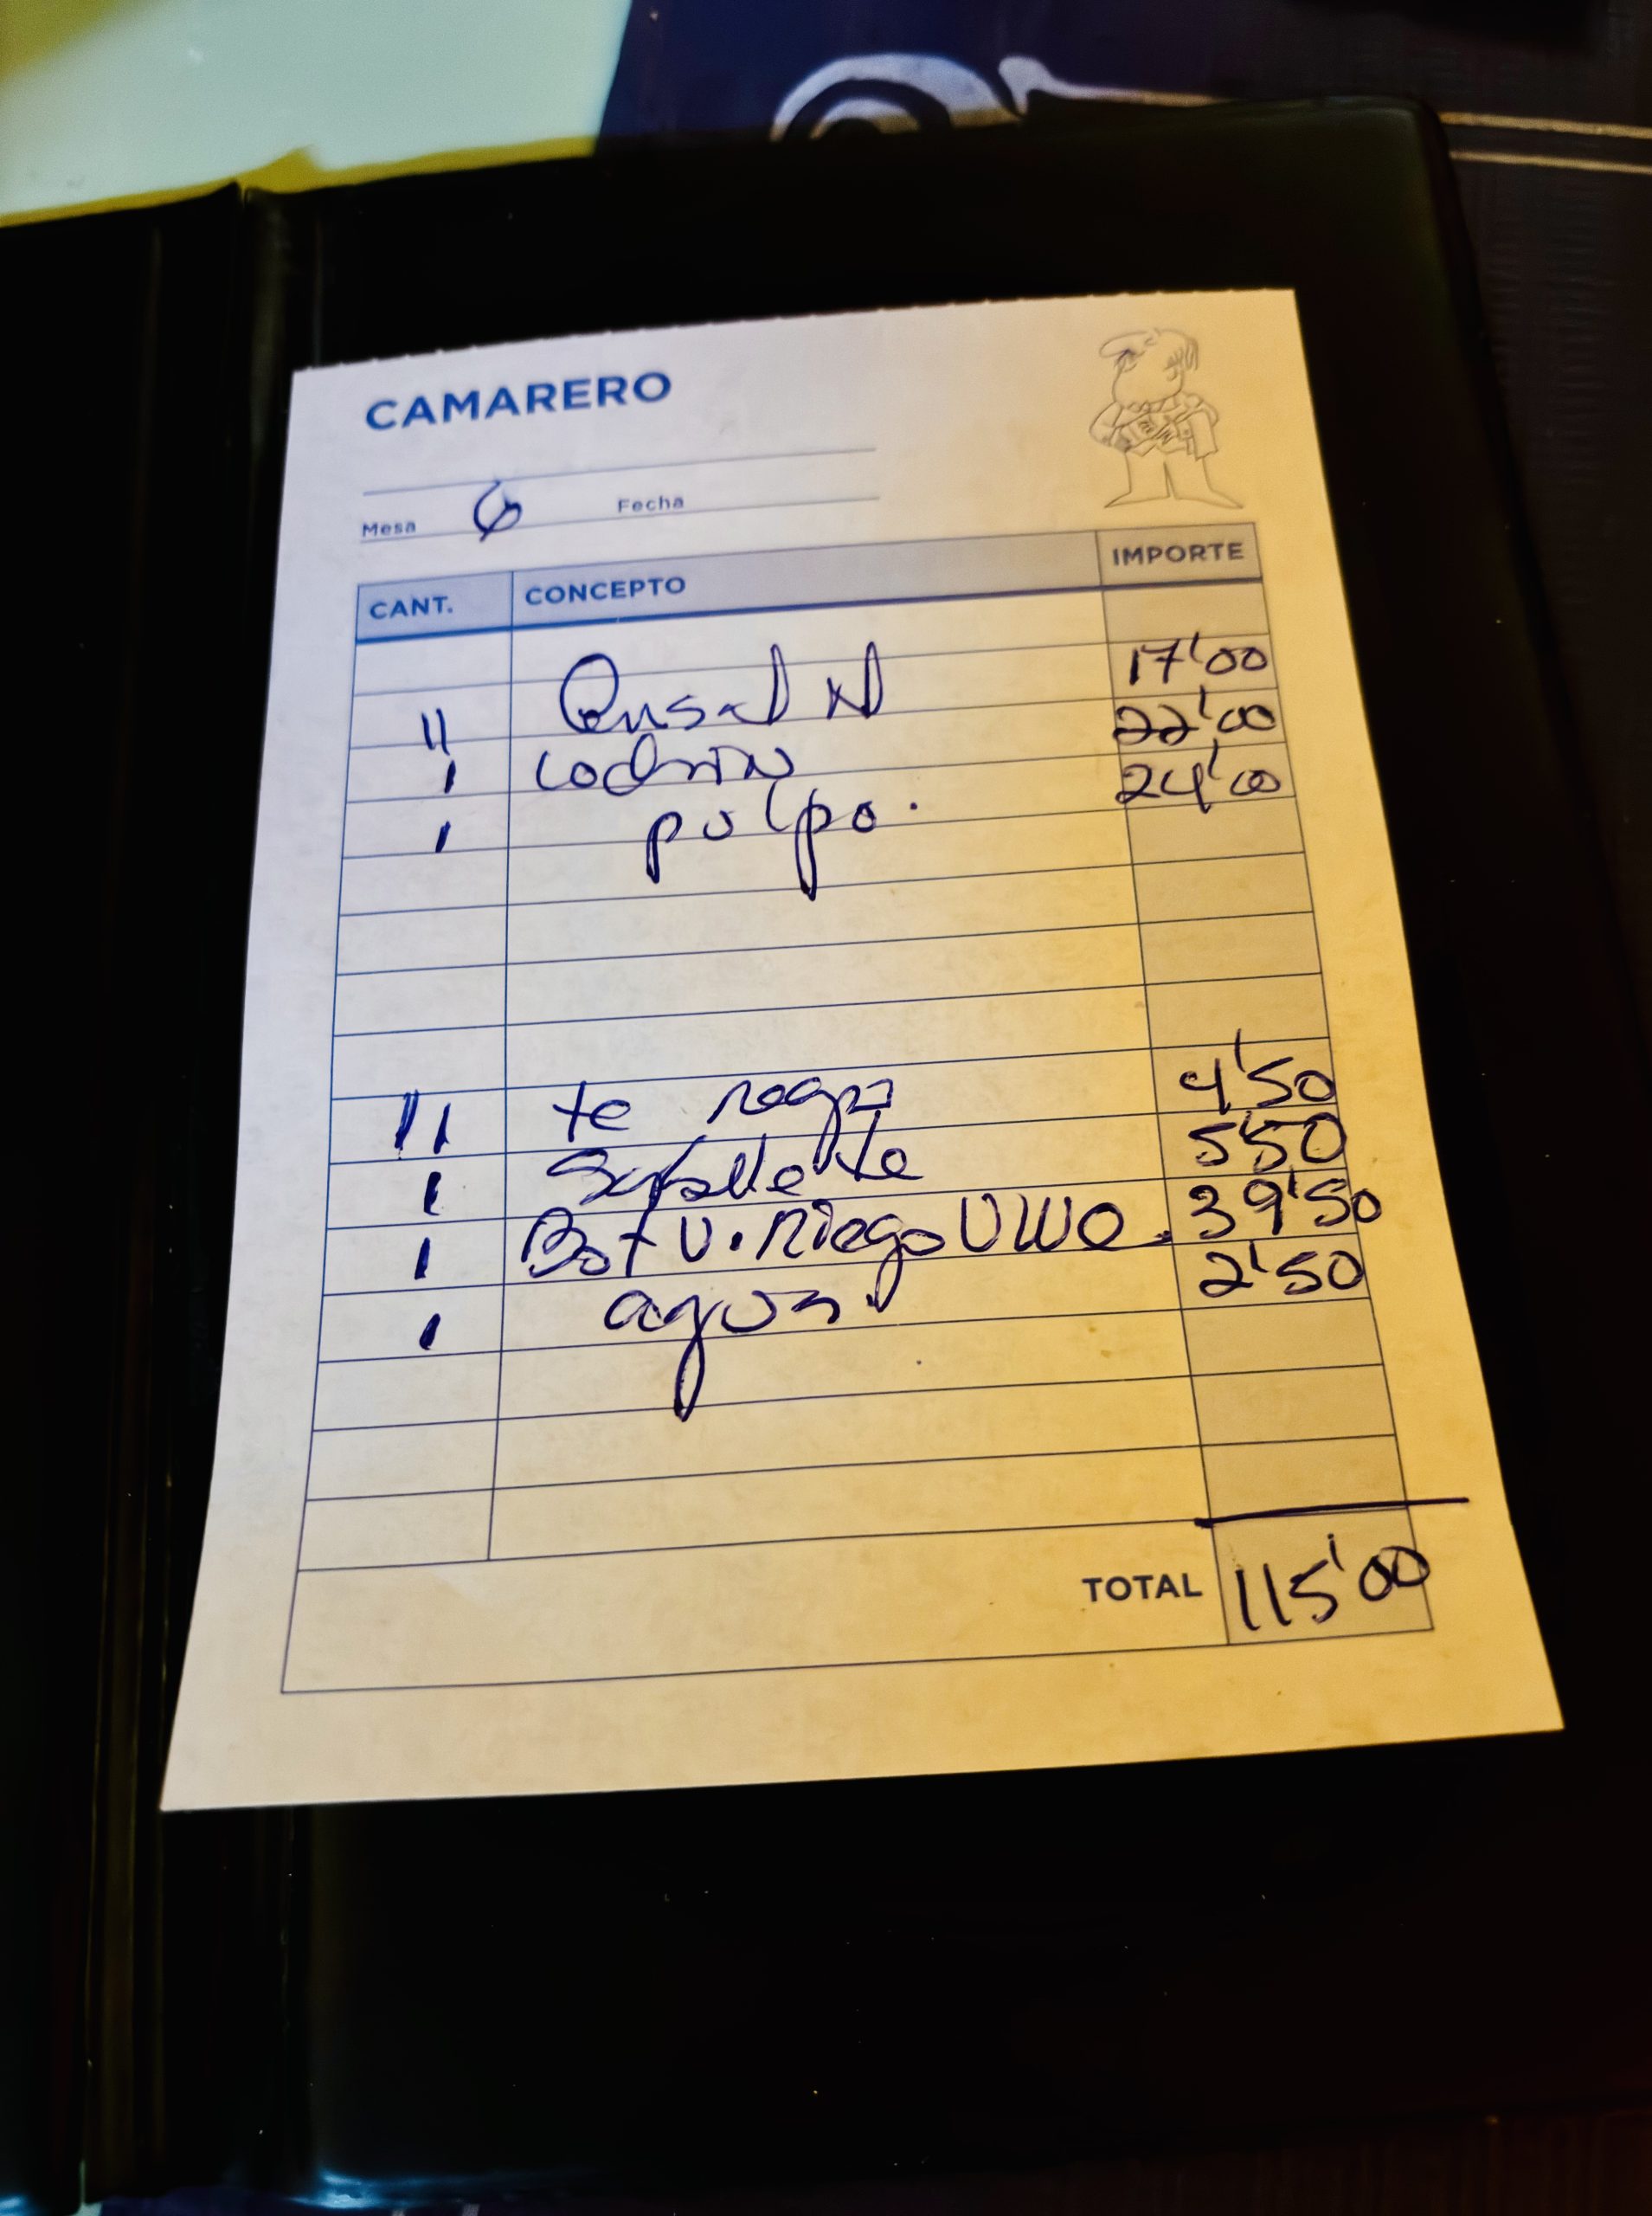 CAMARERO
Mesa 6 Fecha
CANT. CONCEPTO IMPORTE
11 Ensal N 17'00
1 Cochin 22'00
1 pulpo. 24'00
11 te 4'50
1 5'50
1 Bot V. Riego 39'50
1 agua. 2'50
TOTAL 115'00